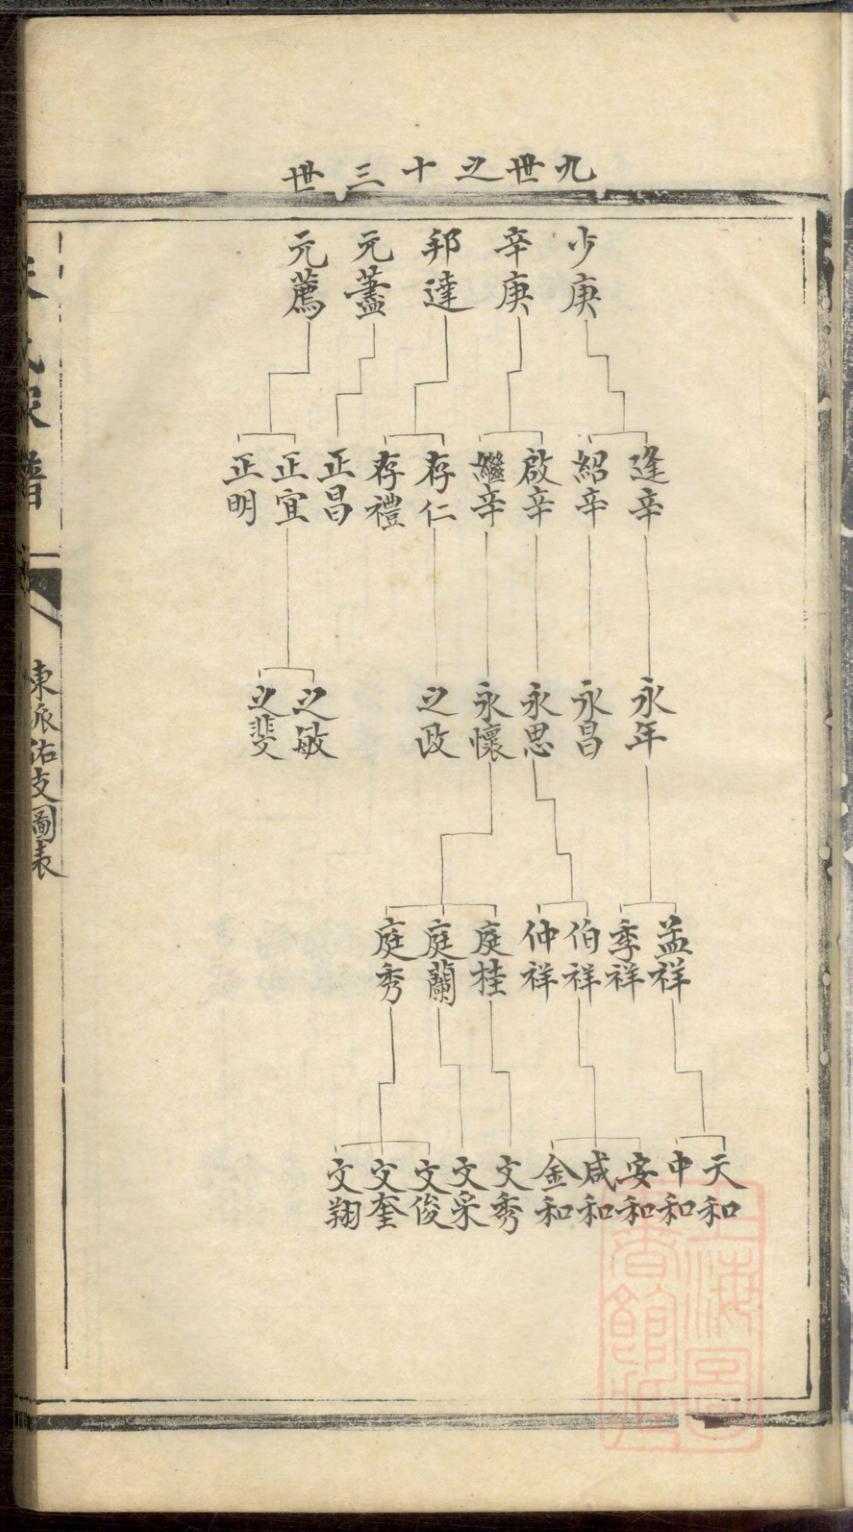 九世之十三世
少庚
辛庚
邦達
元藎
元薦
逢辛
紹辛
啟辛
繼辛
存仁
存禮
正昌
正宜
正明
永年
永昌
永思
永懷
之政
之敏
之斐
孟祥
季祥
伯祥
仲祥
庭桂
庭蘭
庭秀
天和
中和
安和
咸和
金和
文秀
文采
文俊
文奎
文翔
氏家譜
東派佑支圖表
上海圖書館藏